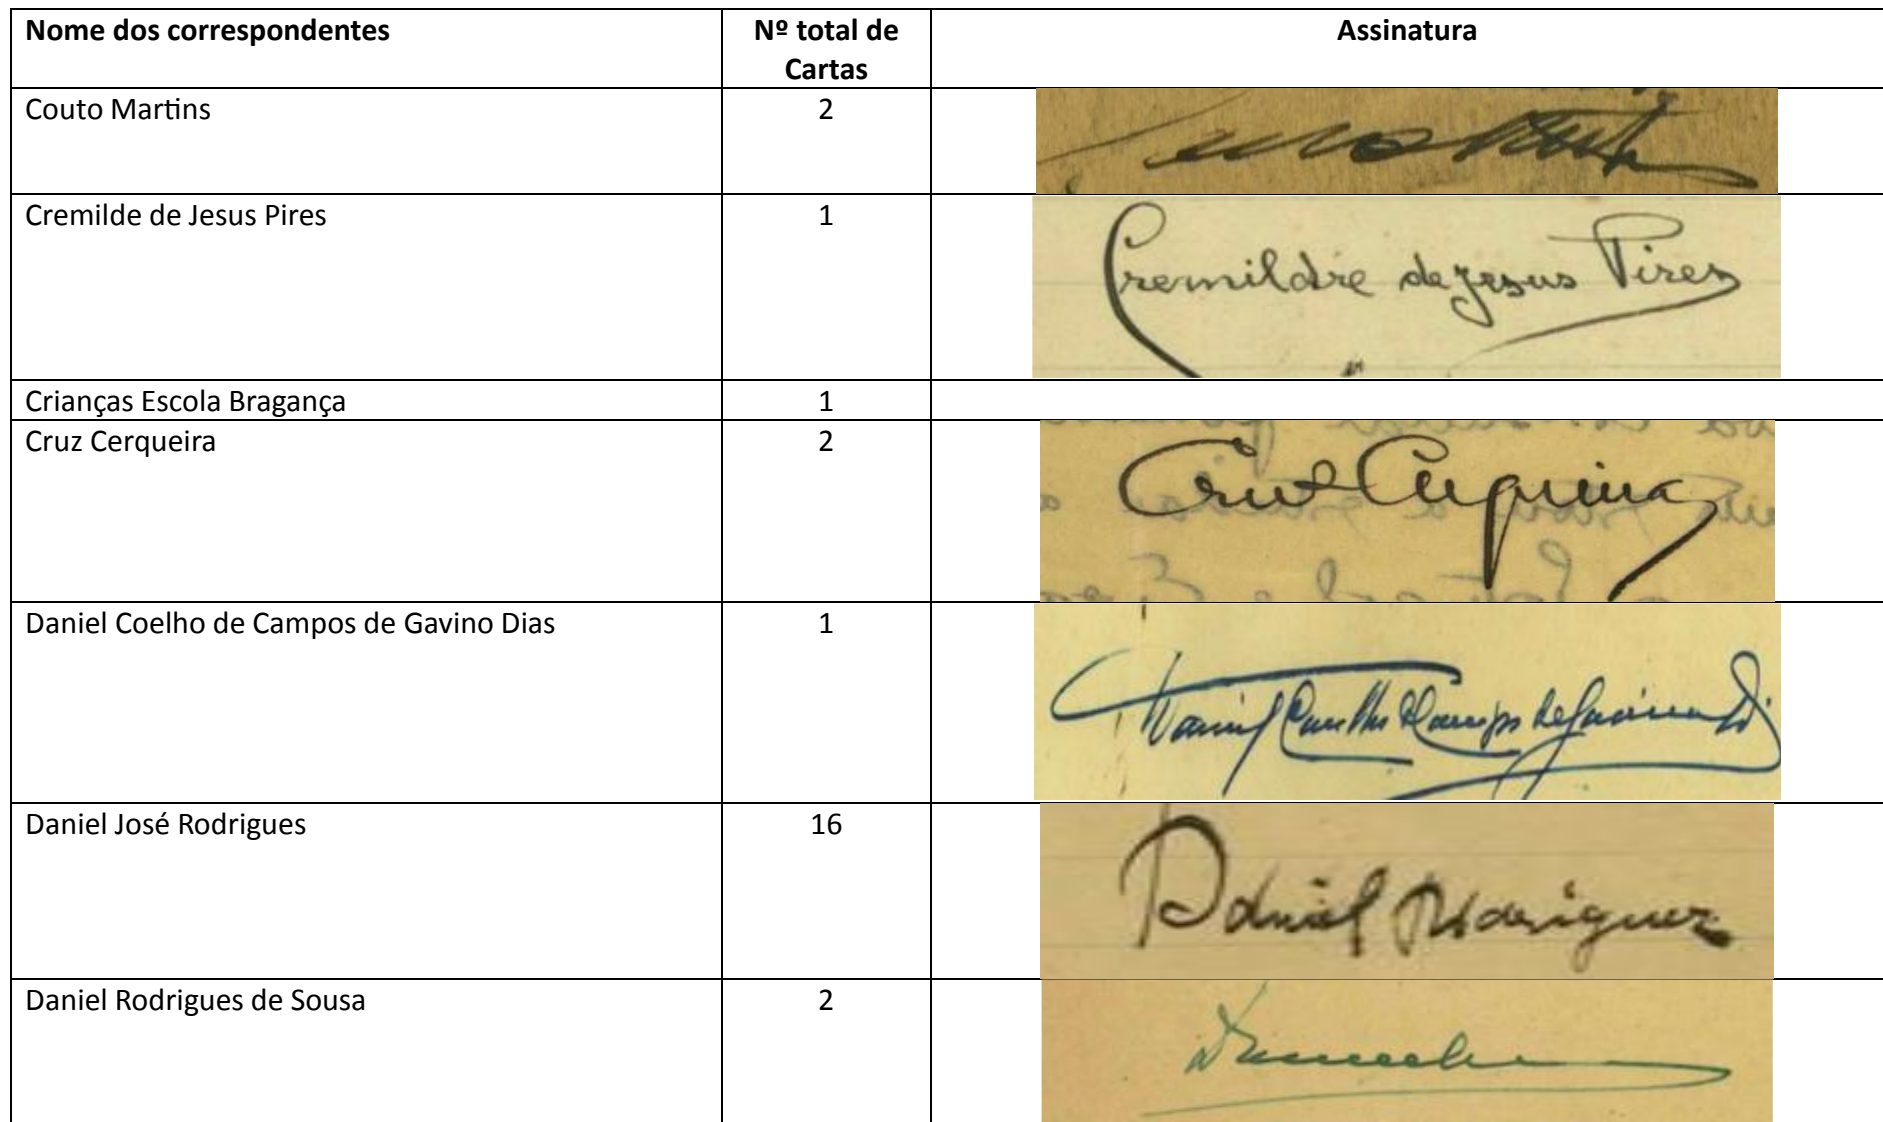 Nome dos correspondentes
Nº total de
Cartas
Assinatura
Couto Martins
2
Cremilde de Jesus Pires
1
Cremildre de Jesus Pires
Crianças Escola Bragança
1
Cruz Cerqueira
2
Cruz Cerqueira
Daniel Coelho de Campos de Gavino Dias
1
Daniel Coelho de Campos de Gavino Di
Daniel José Rodrigues
16
Daniel Rodrigues
Daniel Rodrigues de Sousa
2